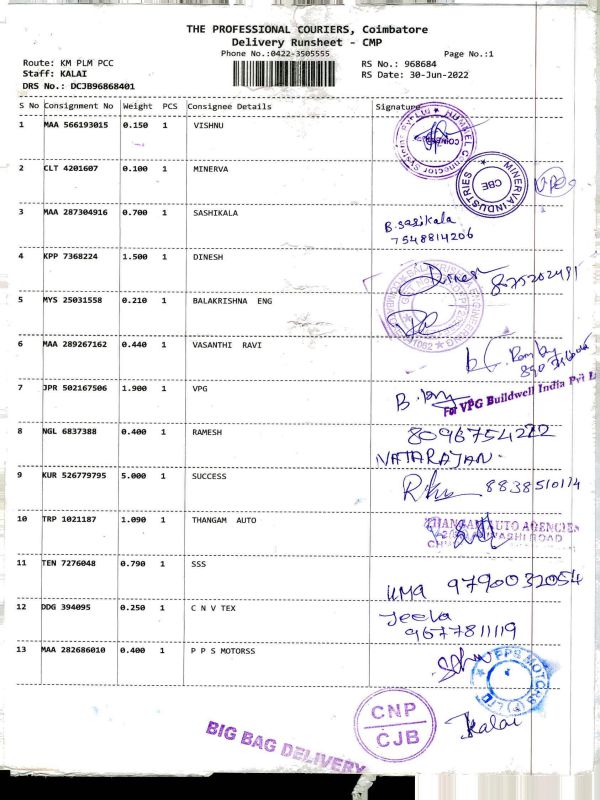 THE PROFESSIONAL COURIERS, Coimbatore
Delivery Runsheet - CMP
Phone No.:0422-3505555
Page No.:1
Route: KM PLM PCC
RS No.: 968684
Staff: KALAI
RS Date: 30-Jun-2022
DRS No.: DCJB96868401
S No Consignment No Weight PCS Consignee Details Signature
1 MAA 566193015 0.150 1 VISHNU
2 CLT 4201607 0.100 1 MINERVA
MINERVA INDUSTRIES CBE
3 MAA 287304916 0.700 1 SASHIKALA
B. Sasikala
7548814206
4 KPP 7368224 1.500 1 DINESH
Dinesh
5 MYS 25031558 0.210 1 BALAKRISHNA ENG
6 MAA 289267162 0.440 1 VASANTHI RAVI
7 JPR 502167506 1.900 1 VPG
For VPG Buildwell India Pvt L
8 NGL 6837388 0.400 1 RAMESH
8096754222
NATARAJAN.
9 KUR 526779795 5.000 1 SUCCESS
10 TRP 1021187 1.090 1 THANGAM AUTO
THANGAM AUTO AGENCIES
11 TEN 7276048 0.790 1 SSS
UMA 9790032054
12 DDG 394095 0.250 1 C N V TEX
Jeela
9677811119
13 MAA 282686010 0.400 1 P P S MOTORSS
PPS MOTORS (P) LTD
CNP
CJB
Kalai
BIG BAG DELIVERY